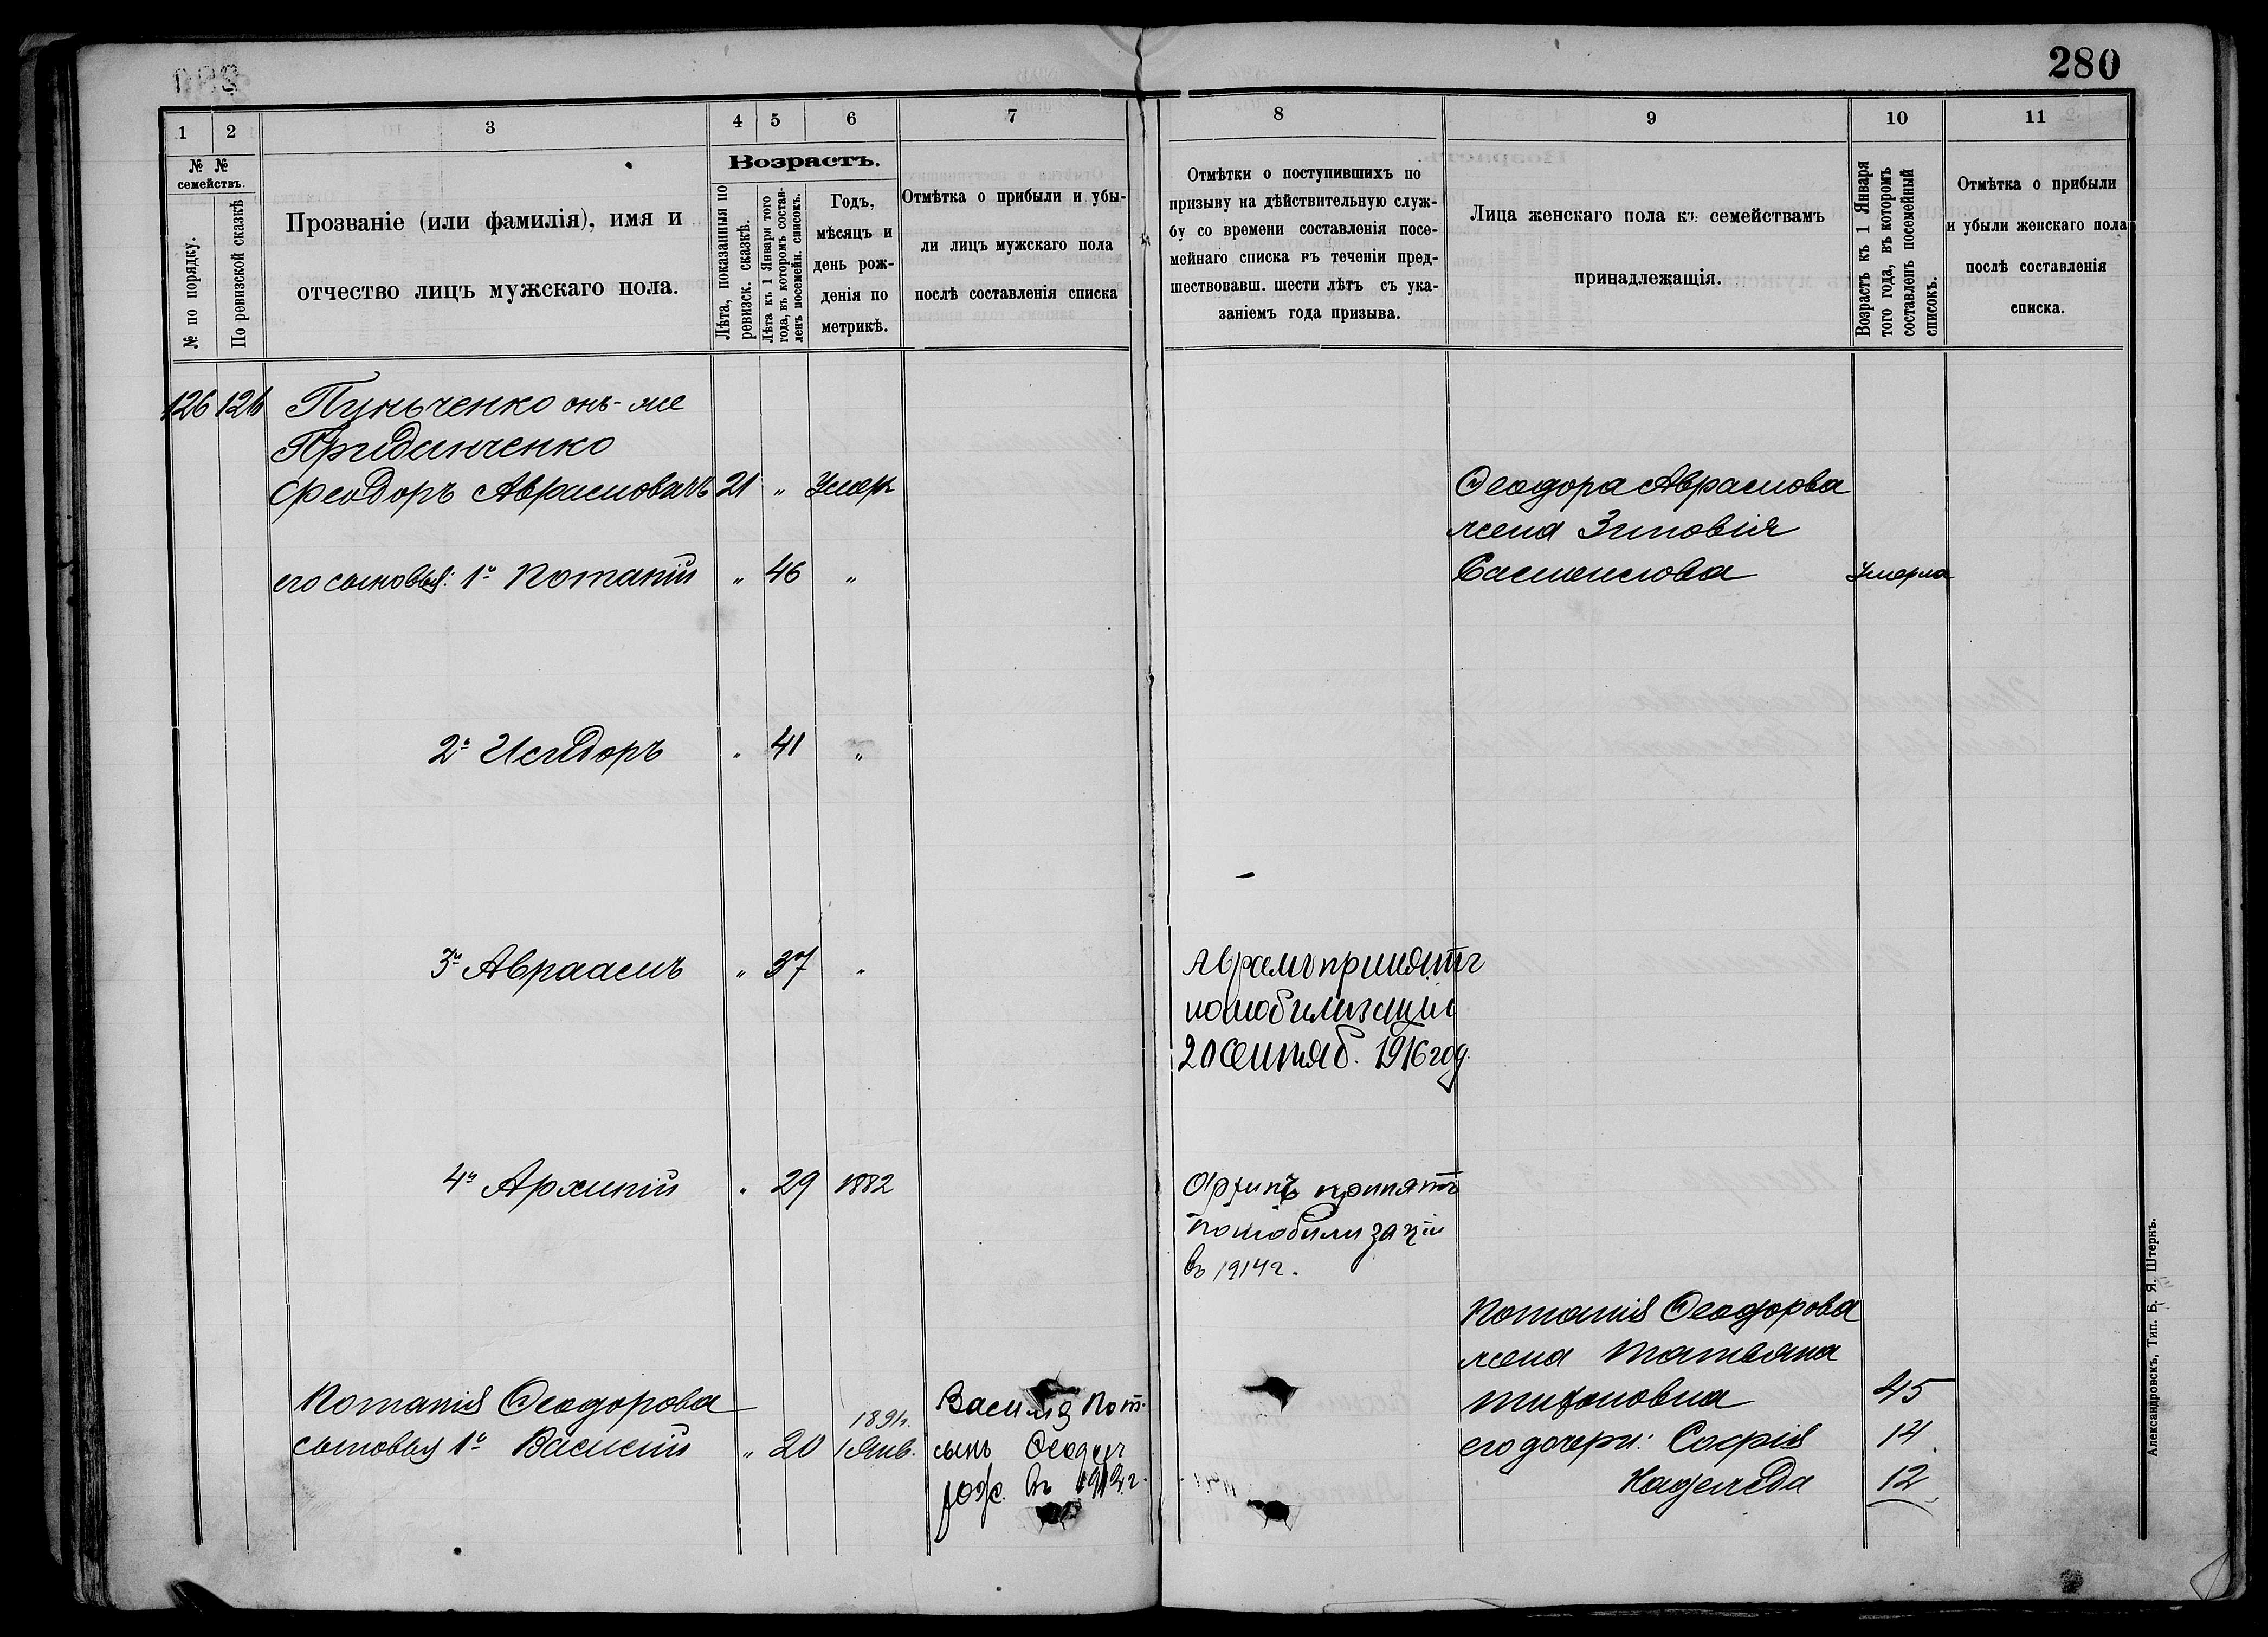 280
1 2 3 4 5 6 7
№ № семействъ.
№ по порядку.
По ревизской сказкѣ
Прозваніе (или фамилія), имя и
отчество лицъ мужскаго пола.
Возрастъ.
Лѣта, показанныя по
ревизск. сказкѣ.
Лѣта къ 1 Января того
года, въ которомъ состав-
ленъ посемейн. списокъ.
Годъ,
мѣсяцъ и
день рож-
денія по
метрикѣ.
Отмѣтка о прибыли и убы-
ли лицъ мужскаго пола
послѣ составленія списка
8 9 10 11
Отмѣтки о поступившихъ по
призыву на дѣйствительную служ-
бу со времени составленія посе-
мейнаго списка въ теченіи пред-
шествовавш. шести лѣтъ съ ука-
заніемъ года призыва.
Лица женскаго пола къ семействамъ
принадлежащія.
Возрастъ къ 1 Января
того года, въ которомъ
составленъ посемейный
списокъ.
Отмѣтка о прибыли
и убыли женскаго пола
послѣ составленія
списка.
126 126 Пуньченко онъ-же
Приданченко
Феодоръ Аврамовичъ 21 " Умеръ
его сыновья: 1й Потапій " 46 "
2й Исидоръ " 41 "
3й Авраамъ " 37 "
4й Архипій " 29 1882
Потапія Ѳеодорова
сыновья 1й Василій " 20 1891г.
1 Янв.
Василія Пот.
сынъ Ѳеодоръ
рож. въ 1913г.
Аврамъ принятъ
по мобилизаціи
20 Сентяб. 1916 год.
Архипъ принятъ
по мобилизаціи
въ 1914 г.
Ѳеодора Аврамова
жена Зиновія
Самойлова Умерла
Потапія Ѳеодорова
жена Татьяна
Тихоновна 45
его дочери: Софія 14
Надежда 12
Александровскъ, Тип. Б. Я. Штернъ.